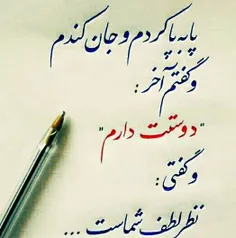 پا به پا کردم و جان کندم
و گفتم آخر :
"دوستت دارم"
و گفتی :
نظر لطف شماست ...